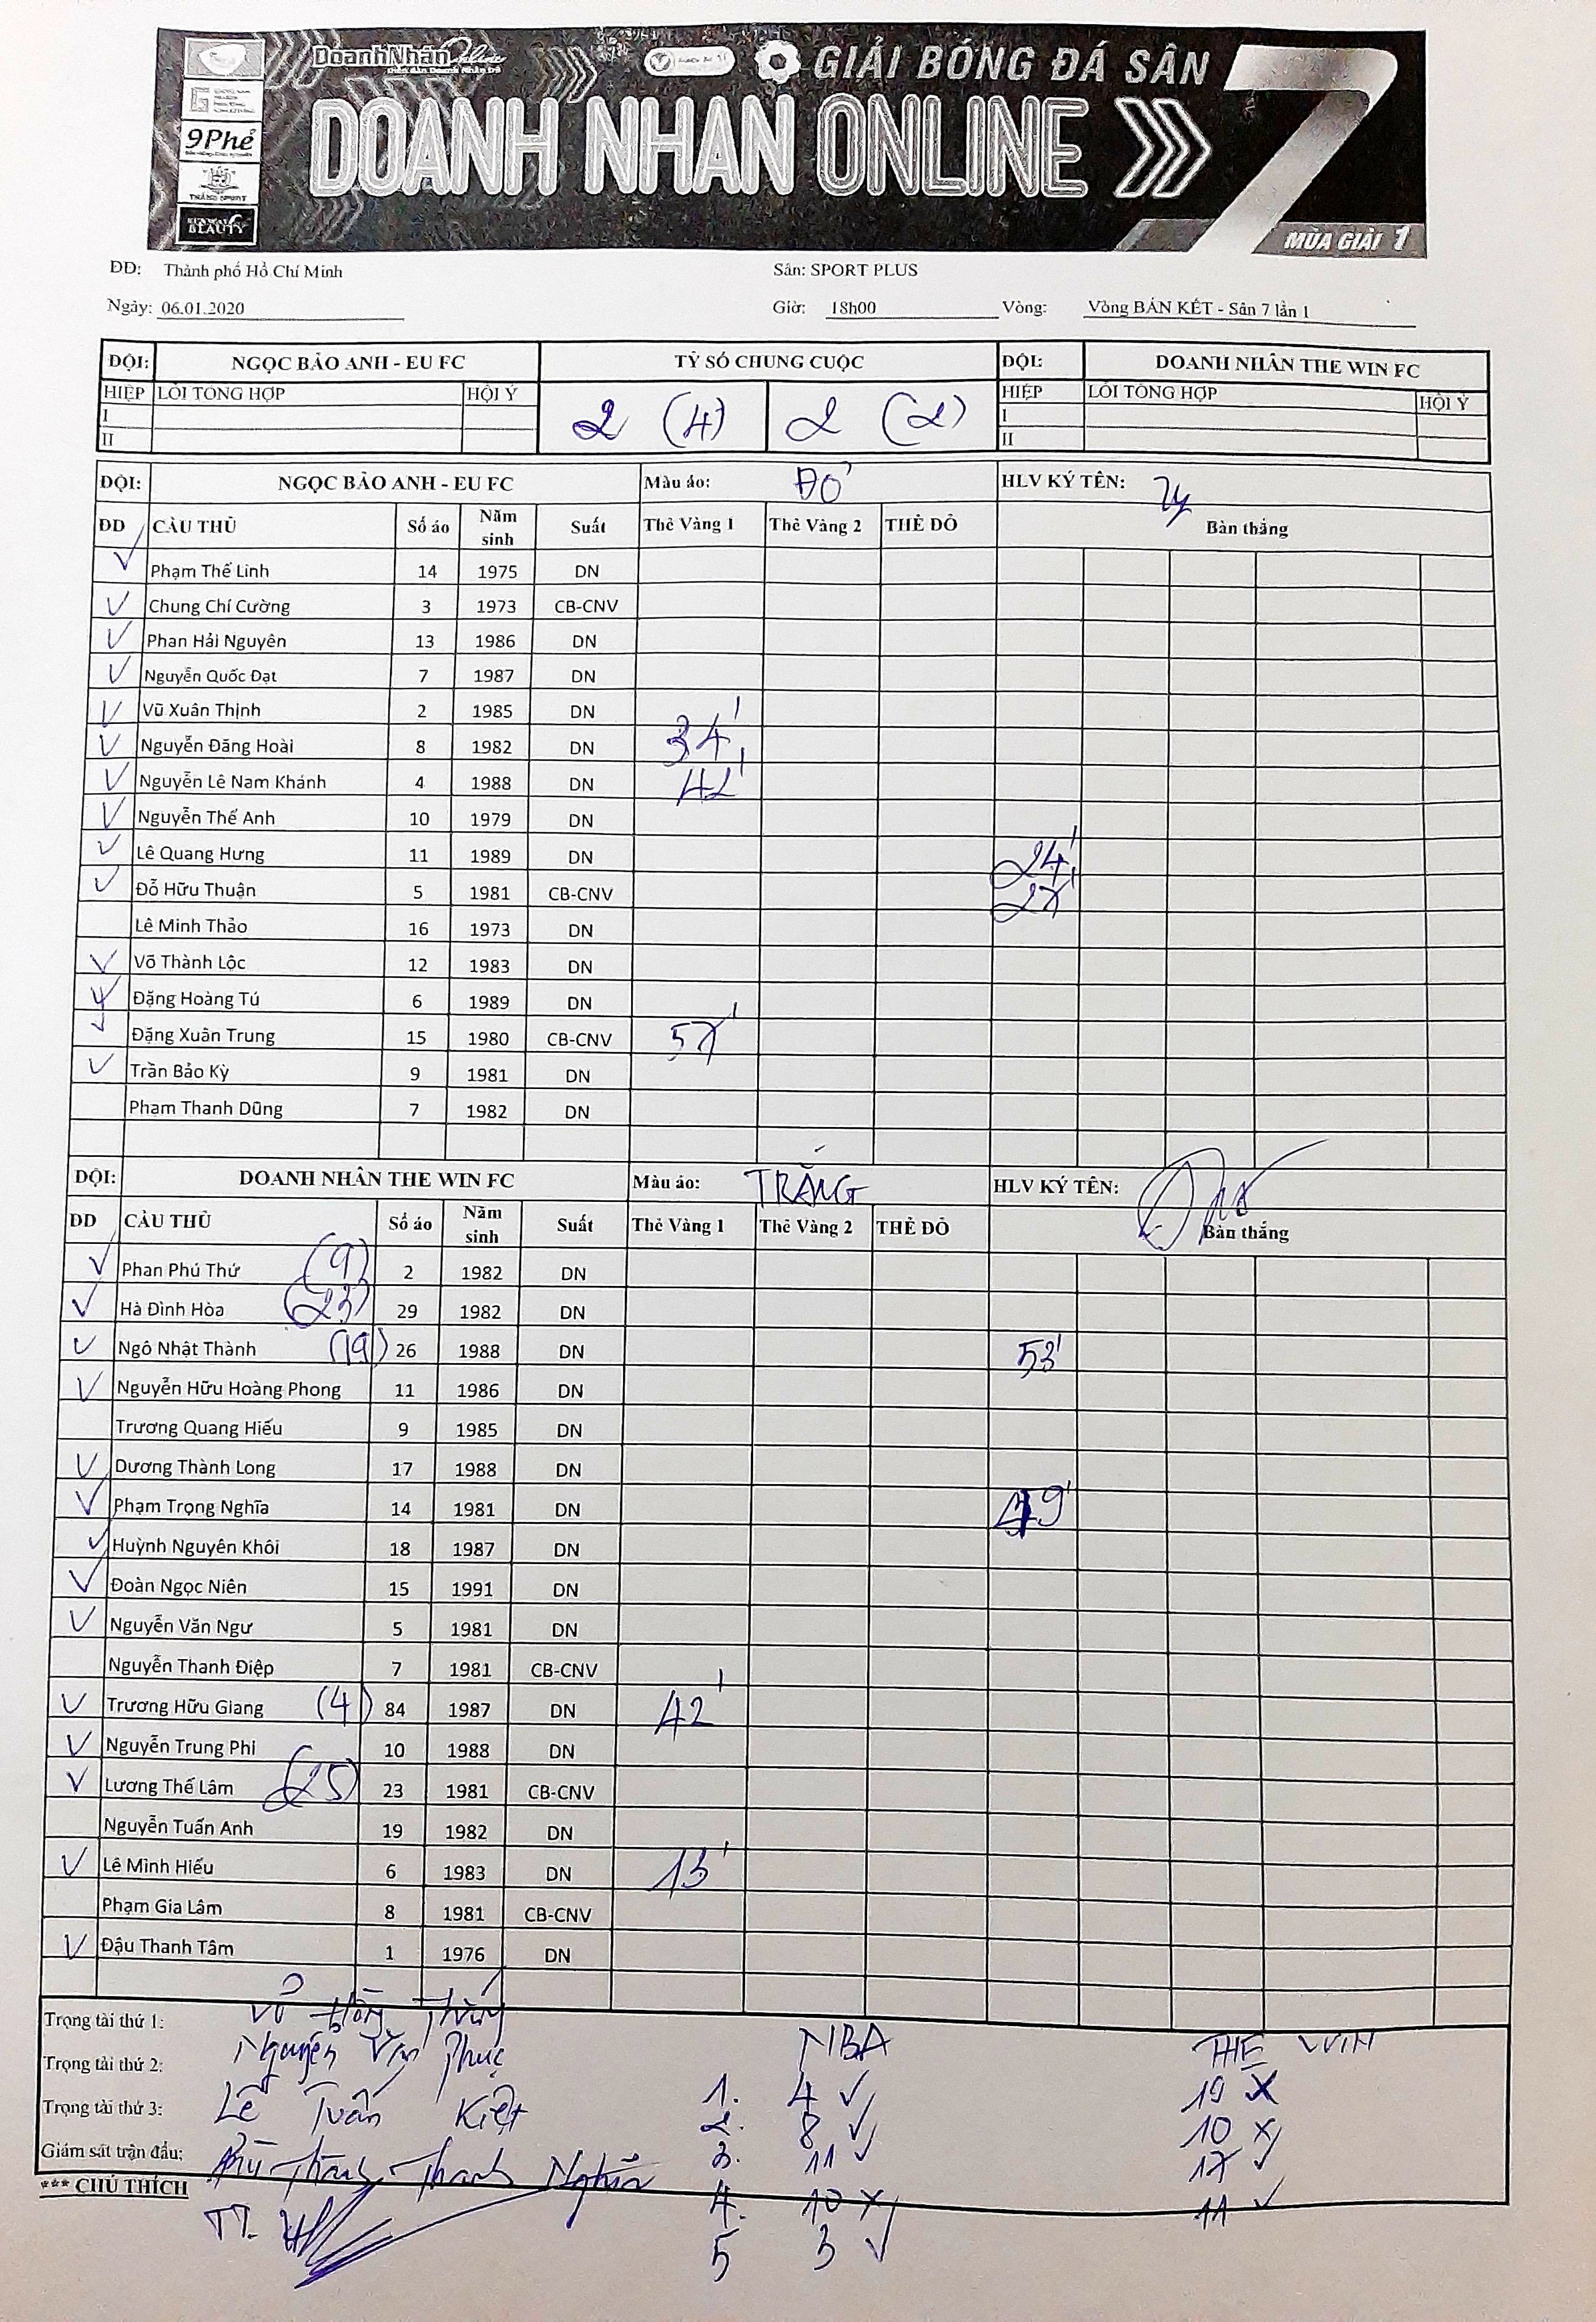 DoanhNhânOnline
GIẢI BÓNG ĐÁ SÂN 7
DOANH NHAN ONLINE
9Phẻ
BEAUTY
MÙA GIẢI 1
ĐĐ: Thành phố Hồ Chí Minh Sân: SPORT PLUS
Ngày: 06.01.2020 Giờ: 18h00 Vòng: Vòng BÁN KẾT - Sân 7 lần 1
ĐỘI: NGỌC BẢO ANH - EU FC TỶ SỐ CHUNG CUỘC ĐỘI: DOANH NHÂN THE WIN FC
HIỆP LỖI TỔNG HỢP HỘI Ý 2 (4) 2 (2) HIỆP LỖI TỔNG HỢP HỘI Ý
I I
II II
ĐỘI: NGỌC BẢO ANH - EU FC Màu áo: ĐỎ HLV KÝ TÊN:
ĐD CẦU THỦ Số áo Năm sinh Suất Thẻ Vàng 1 Thẻ Vàng 2 THẺ ĐỎ Bàn thắng
✓ Phạm Thế Linh 14 1975 DN
✓ Chung Chí Cường 3 1973 CB-CNV
✓ Phan Hải Nguyên 13 1986 DN
✓ Nguyễn Quốc Đạt 7 1987 DN
✓ Vũ Xuân Thịnh 2 1985 DN
✓ Nguyễn Đăng Hoài 8 1982 DN 34'
✓ Nguyễn Lê Nam Khánh 4 1988 DN 42'
✓ Nguyễn Thế Anh 10 1979 DN
✓ Lê Quang Hưng 11 1989 DN 24'
✓ Đỗ Hữu Thuận 5 1981 CB-CNV 27'
Lê Minh Thảo 16 1973 DN
✓ Võ Thành Lộc 12 1983 DN
✓ Đặng Hoàng Tú 6 1989 DN
✓ Đặng Xuân Trung 15 1980 CB-CNV 57'
✓ Trần Bảo Kỳ 9 1981 DN
Phạm Thanh Dũng 7 1982 DN
ĐỘI: DOANH NHÂN THE WIN FC Màu áo: TRẮNG HLV KÝ TÊN:
ĐD CẦU THỦ Số áo Năm sinh Suất Thẻ Vàng 1 Thẻ Vàng 2 THẺ ĐỎ Bàn thắng
✓ Phan Phú Thứ (9) 2 1982 DN
✓ Hà Đình Hòa (23) 29 1982 DN
✓ Ngô Nhật Thành (19) 26 1988 DN 53'
✓ Nguyễn Hữu Hoàng Phong 11 1986 DN
Trương Quang Hiếu 9 1985 DN
✓ Dương Thành Long 17 1988 DN
✓ Phạm Trọng Nghĩa 14 1981 DN 49'
✓ Huỳnh Nguyên Khôi 18 1987 DN
✓ Đoàn Ngọc Niên 15 1991 DN
✓ Nguyễn Văn Ngư 5 1981 DN
Nguyễn Thanh Điệp 7 1981 CB-CNV
✓ Trương Hữu Giang (4) 84 1987 DN 42'
✓ Nguyễn Trung Phi 10 1988 DN
✓ Lương Thế Lâm (25) 23 1981 CB-CNV
Nguyễn Tuấn Anh 19 1982 DN
✓ Lê Minh Hiếu 6 1983 DN 13'
Phạm Gia Lâm 8 1981 CB-CNV
✓ Đậu Thanh Tâm 1 1976 DN
Trọng tài thứ 1: NBA THE WIN
Trọng tài thứ 2: Nguyễn Văn Phúc 1. 4 ✓ 19 X
Trọng tài thứ 3: Lê Tuấn Kiệt 2. 8 ✓ 10 X
Giám sát trận đấu: 3. 11 ✓ 17 ✓
*** CHÚ THÍCH 4. 10 X 11 ✓
5 3 ✓